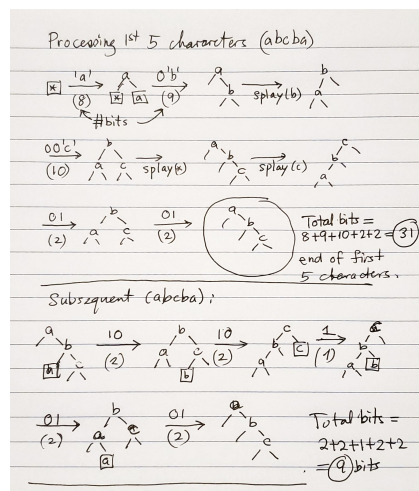 Processing 1st 5 characters (abcba)
* 'a' (8) a * a 0'b' (9) a b splay(b) b a
#bits
00'c' (10) b a c splay(*) a b c splay(c) c b a
01 (2) b a c 01 (2) a b c Total bits =
8+9+10+2+2 = 31
end of first
5 characters.
Subsequent (abcba):
a b a c 10 (2) b a c b 10 (2) c b c a 1 (1) c b a b
01 (2) b a c a 01 (2) a b c Total bits =
2+2+1+2+2
= 9 bits